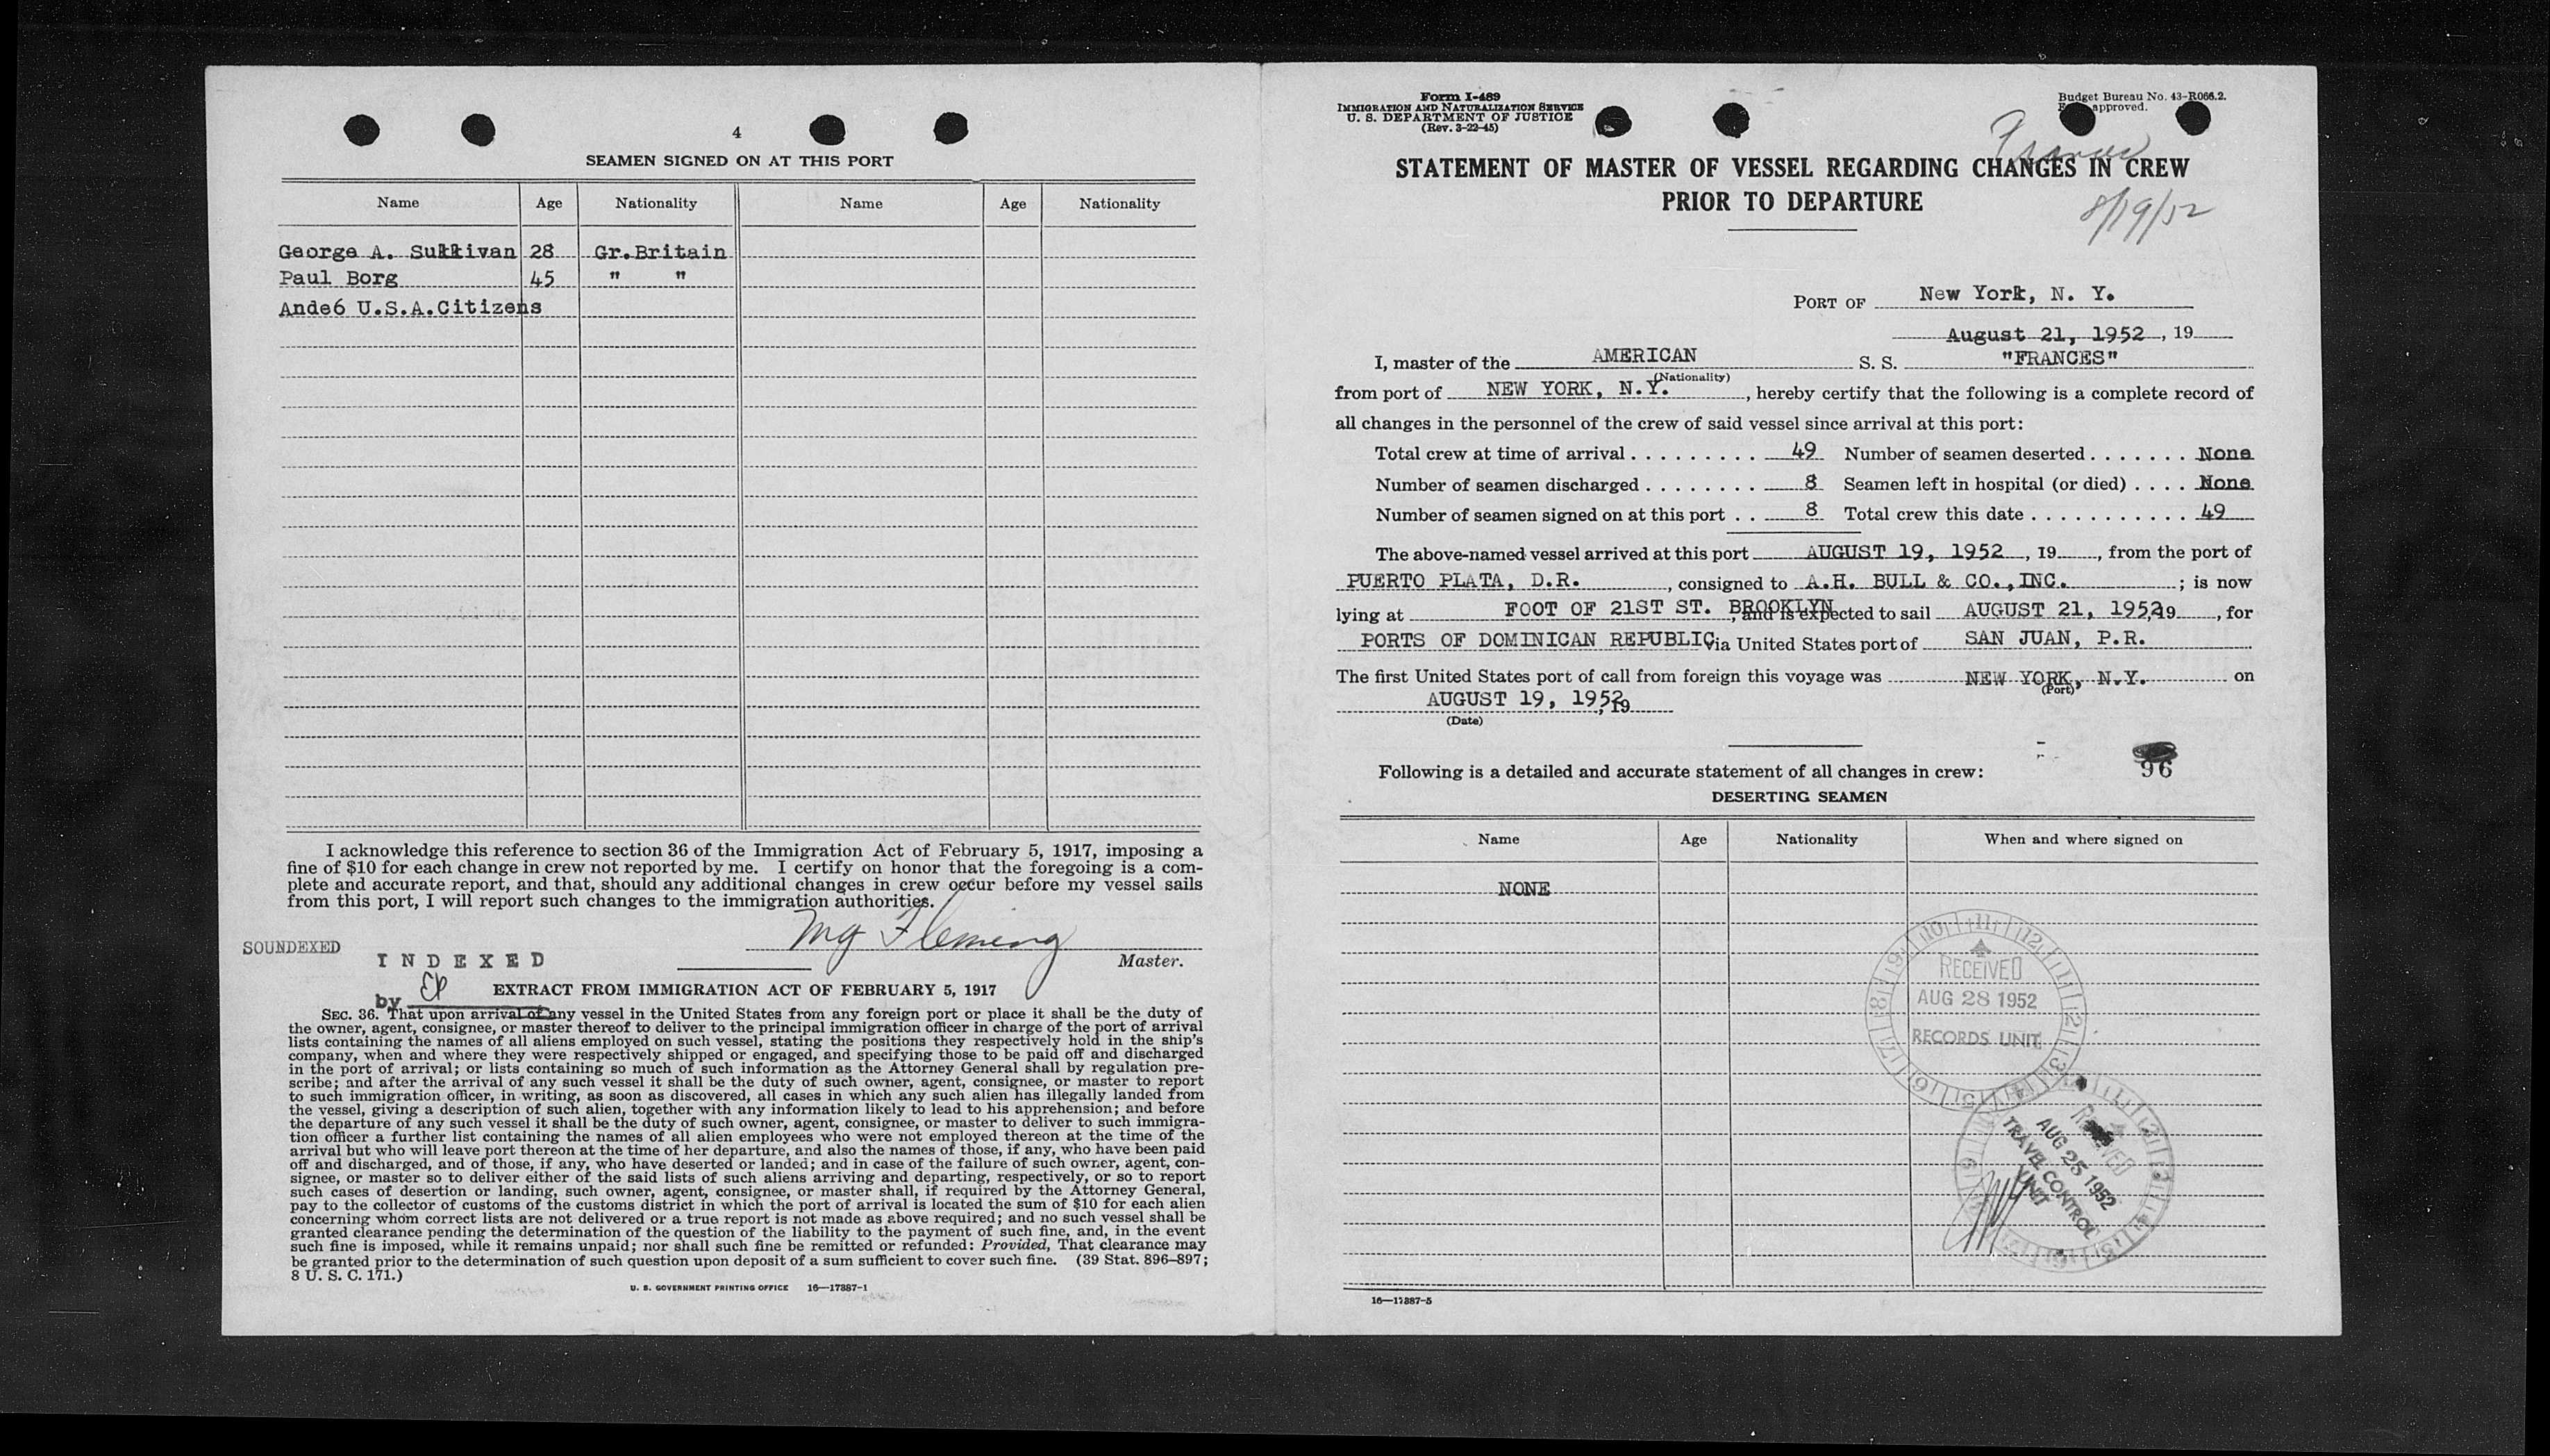 4
SEAMEN SIGNED ON AT THIS PORT
Name Age Nationality Name Age Nationality
George A. Sukkivan 28 Gr.Britain
Paul Borg 45 " "
Ande6 U.S.A.Citizens
I acknowledge this reference to section 36 of the Immigration Act of February 5, 1917, imposing a
fine of $10 for each change in crew not reported by me. I certify on honor that the foregoing is a com-
plete and accurate report, and that, should any additional changes in crew occur before my vessel sails
from this port, I will report such changes to the immigration authorities.
Fleming
SOUNDEXED
INDEXED
Master.
by
EXTRACT FROM IMMIGRATION ACT OF FEBRUARY 5, 1917
SEC. 36. That upon arrival of any vessel in the United States from any foreign port or place it shall be the duty of
the owner, agent, consignee, or master thereof to deliver to the principal immigration officer in charge of the port of arrival
lists containing the names of all aliens employed on such vessel, stating the positions they respectively hold in the ship's
company, when and where they were respectively shipped or engaged, and specifying those to be paid off and discharged
in the port of arrival; or lists containing so much of such information as the Attorney General shall by regulation pre-
scribe; and after the arrival of any such vessel it shall be the duty of such owner, agent, consignee, or master to report
to such immigration officer, in writing, as soon as discovered, all cases in which any such alien has illegally landed from
the vessel, giving a description of such alien, together with any information likely to lead to his apprehension; and before
the departure of any such vessel it shall be the duty of such owner, agent, consignee, or master to deliver to such immigra-
tion officer a further list containing the names of all alien employees who were not employed thereon at the time of the
arrival but who will leave port thereon at the time of her departure, and also the names of those, if any, who have been paid
off and discharged, and of those, if any, who have deserted or landed; and in case of the failure of such owner, agent, con-
signee, or master so to deliver either of the said lists of such aliens arriving and departing, respectively, or so to report
such cases of desertion or landing, such owner, agent, consignee, or master shall, if required by the Attorney General,
pay to the collector of customs of the customs district in which the port of arrival is located the sum of $10 for each alien
concerning whom correct lists are not delivered or a true report is not made as above required; and no such vessel shall be
granted clearance pending the determination of the question of the liability to the payment of such fine, and, in the event
such fine is imposed, while it remains unpaid; nor shall such fine be remitted or refunded: Provided, That clearance may
be granted prior to the determination of such question upon deposit of a sum sufficient to cover such fine. (39 Stat. 896–897;
8 U. S. C. 171.)
U. S. GOVERNMENT PRINTING OFFICE 16—17887-1
Form I-489
IMMIGRATION AND NATURALIZATION SERVICE
U. S. DEPARTMENT OF JUSTICE
(Rev. 3-22-45)
Budget Bureau No. 43-R066.2.
approved.
Frances
STATEMENT OF MASTER OF VESSEL REGARDING CHANGES IN CREW
PRIOR TO DEPARTURE
8/19/52
PORT OF New York, N. Y.
August 21, 1952, 19
I, master of the AMERICAN S. S. "FRANCES"
(Nationality)
from port of NEW YORK, N.Y., hereby certify that the following is a complete record of
all changes in the personnel of the crew of said vessel since arrival at this port:
Total crew at time of arrival . . . . . . . . . 49 Number of seamen deserted . . . . . . . None
Number of seamen discharged . . . . . . . . 8 Seamen left in hospital (or died) . . . . None
Number of seamen signed on at this port . . 8 Total crew this date . . . . . . . . . . . 49
The above-named vessel arrived at this port AUGUST 19, 1952, 19, from the port of
PUERTO PLATA, D.R., consigned to A.H. BULL & CO.,INC. ; is now
lying at FOOT OF 21ST ST. BROOKLYN, and is expected to sail AUGUST 21, 1952, 19, for
PORTS OF DOMINICAN REPUBLIC via United States port of SAN JUAN, P.R.
The first United States port of call from foreign this voyage was NEW YORK, N.Y. on
(Port)
AUGUST 19, 1952, 19
(Date)
96
Following is a detailed and accurate statement of all changes in crew:
DESERTING SEAMEN
Name Age Nationality When and where signed on
NONE
RECEIVED
AUG 28 1952
RECORDS UNIT
RECEIVED
AUG 25 1952
TRAVEL CONTROL
UNIT
16—17887-5